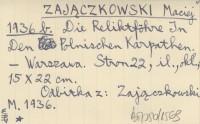 ZAJĄCZKOWSKI Maciej
1936 b. Die Reliktföhre In
Den Polnischen Karpathen.
– Warszawa. Stron 22, il., skl.,
15 x 22 cm.
Odbitka z: Zajączkowski
M. 1936.